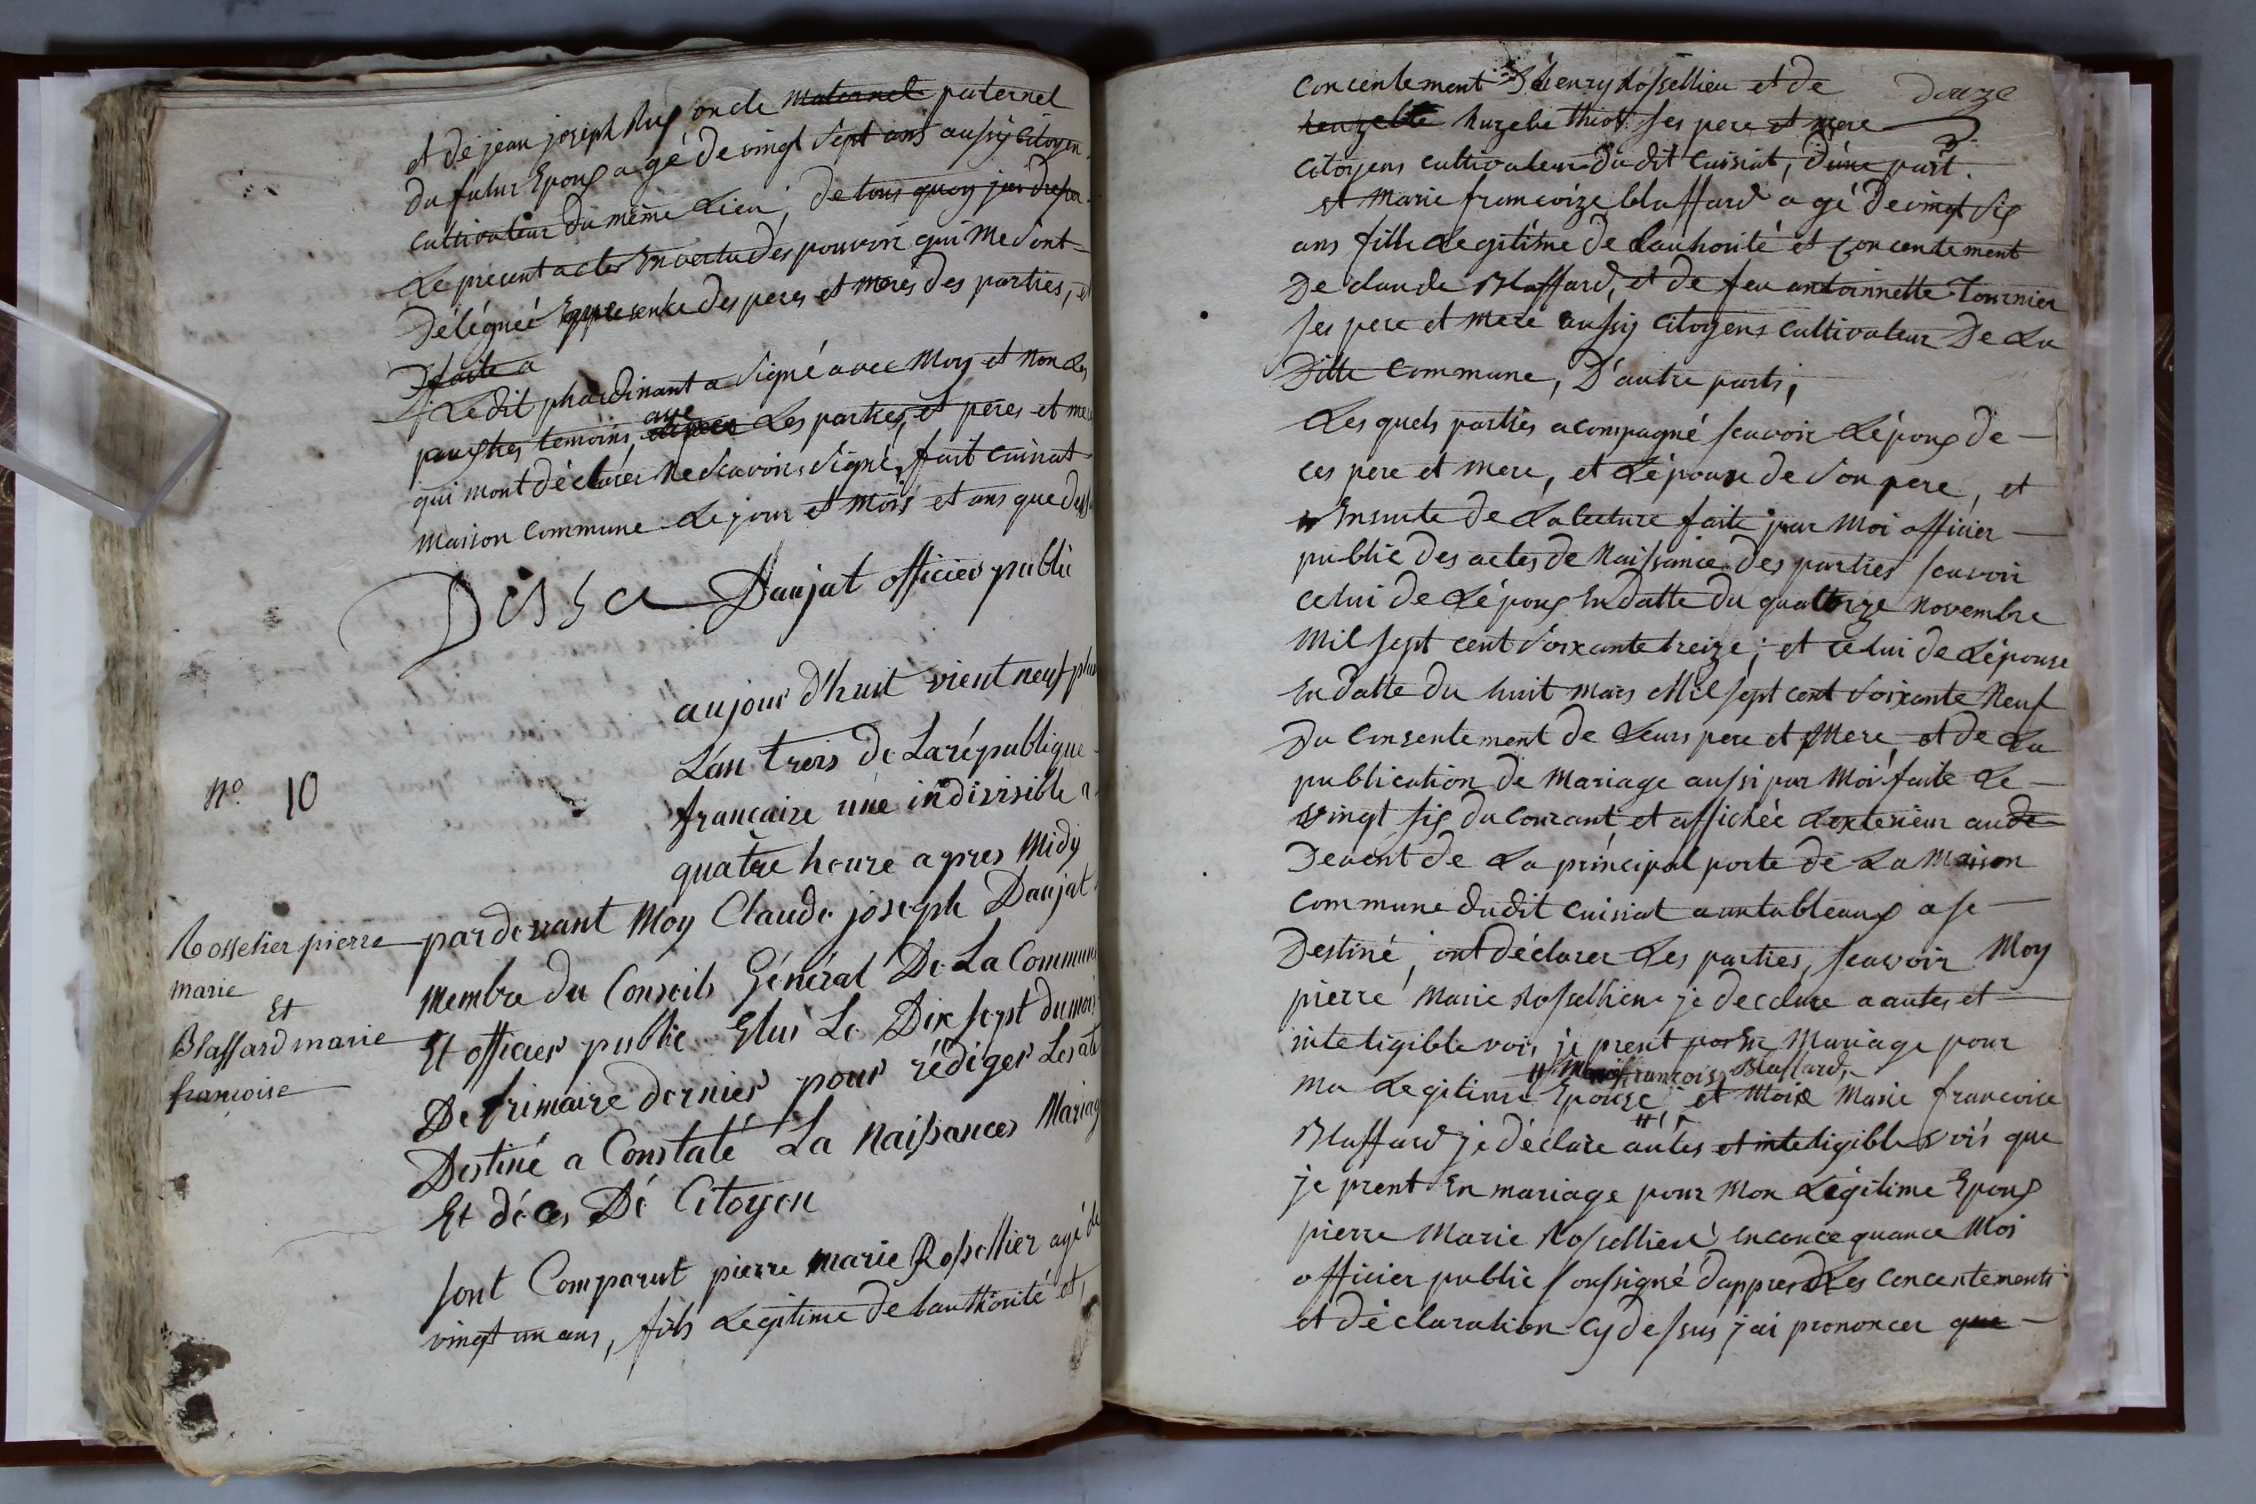 et de jean joseph Rux oncle maternel paternel
du futur Epoux agé de vingt sept ans aussy Citoyen
cultivateur du même Lieu,
Le present actes En vertu des pouvoir qui me sont
Délégueé En presence des peres et meres des parties, et
faite a
Le dit phardinant a signé avec Moy et Non Les
temoins, avec Les parties, et peres et mere
qui mont déclarer Ne scavoir signé, fait cuisiat
maison commune Le jour et mois et ans que dessus
Daujat officier public
N.o 10
aujour d'huit vient neuf
L'an trois de La république
francaize une indivisible a
quatre heure apres Midy
Rosselier pierre
marie
Et
Blaffard marie
francoise
pardevant Moy Claude joseph Daujat
Membre du Conseils Général De La Commune
Et officier public Elus Le Dix sept du mois
De frimaire dernier pour rédiger Les acte
Destiné a Constaté La Naissances Mariage
Et décès Dé Citoyen
sont Comparut pierre marie Rossellier agé de
vingt un ans, fils Legitime de lauthorité et
douze
concentement D'henry Rossellier et de
huzebe thiot ses pere et mere
citoyens cultivateur du dit Cuisiat, d'une part.
et Marie francoize blaffard agé de vingt six
ans fille Legitime de Lauhorité et concentement
De claude Blaffard, et de feu antoinnette Tournier
ses pere et mere aussy citoyens cultivateur De La
Ditte Commune, D'autre parts,
Les quels partiés acompagné scavoir Lépoux de
ces pere et mere, et Lépouze de son pere, et
Ensuite de La lecture faite par Moi officier
public des actes de Naissance des parties scavoir
celui de Lépoux En datte du quattorze Novembre
Mil sept cent soixante treize; et celui de Lépouse
En datte du huit mars Mil sept cent soixante Neuf
Du consentement de Leurs pere et Mere, et de La
publication de Mariage aussi par Moi faite Le
vingt six du courant, et affichée Lexterieur au de
Devent de La principal porte de La Maison
commune dudit cuisiat a un tableaux a se
Destiné, ont déclarer Les parties, scavoir Moy
pierre Marie Rossellier je declare a autes et
inteligible vois je prent pour En Mariage pour
Marie francoise Blaffard,
Ma Legitime Epouze, et Moie Marie francoise
Blaffard je déclare autes et inteligible vois que
je prent En mariage pour Mon Légitime Epoux
pierre Marie Rossellier En concequance Moi
officier public soussigné dappres Les concentements
et déclaration cy dessus j'ai prononcer que